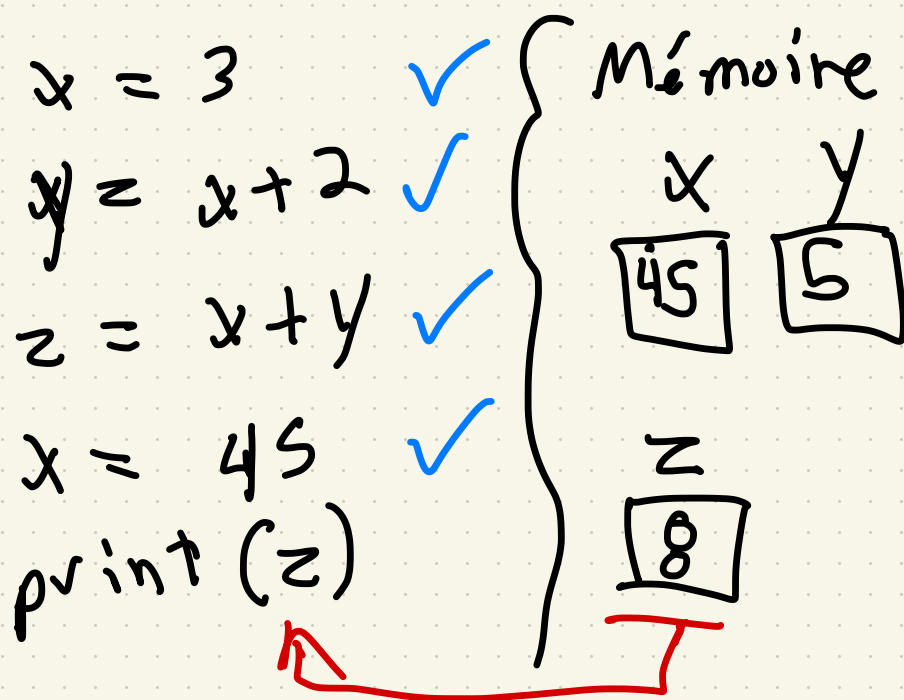 x = 3
y = x + 2
z = x + y
x = 45
print (z)
Mémoire
x y
45 5
z
8